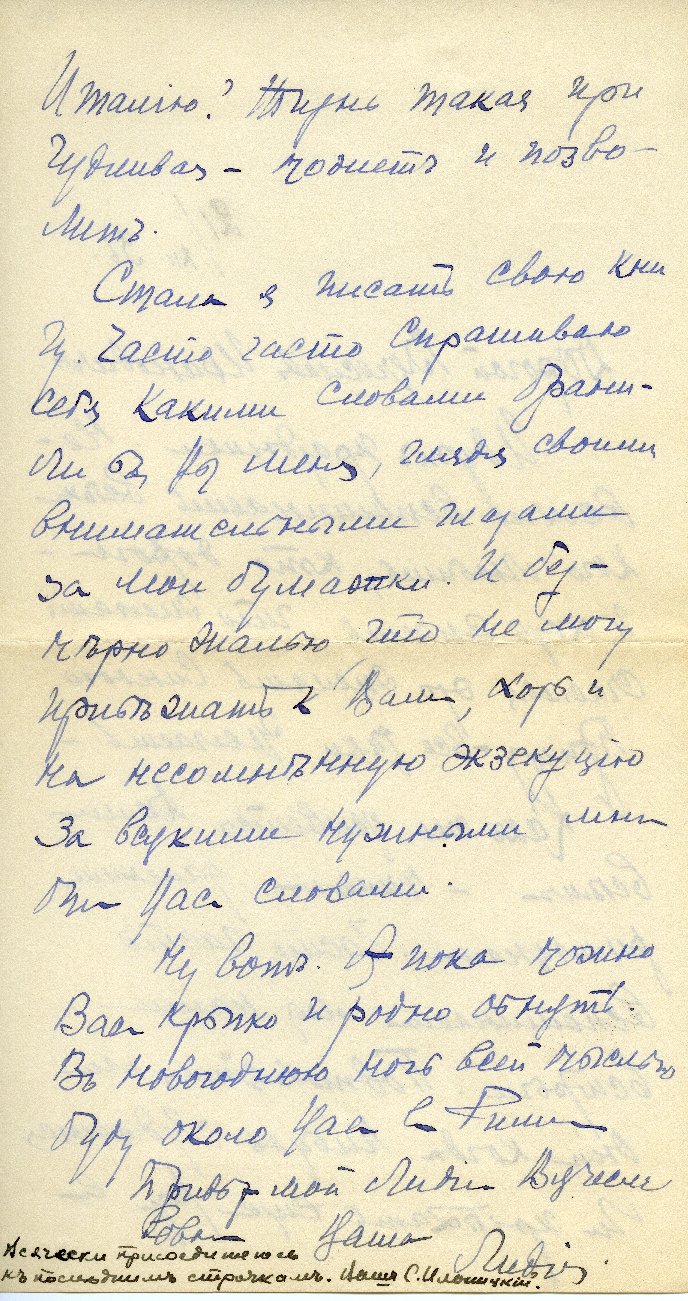 Италію? Жизнь такая при
чудливая – можетъ и позво–
литъ.
Стала я писать свою кни
гу. Часто часто спрашиваю
себя какими словами брани–
ли бъ Вы меня, глядя своими
внимательными глазами
за мои бумажки. И без–
мѣрно жалью что не могу
пріѣзжать к Вамъ, хоть и
на несомнѣнную экзекуцію
за всякими нужными мнѣ
отъ Васъ словами.
Ну вотъ. А пока можно
Васъ крѣпко и родно обнять.
Въ новогоднюю ночь всей мыслью
буду около Васъ въ Римѣ
Привѣт мой Лидіи Вячеславовнѣ
Ваша Лидія
Всячески присоединяюсь
къ послѣднимъ строчкамъ. Вашъ С.